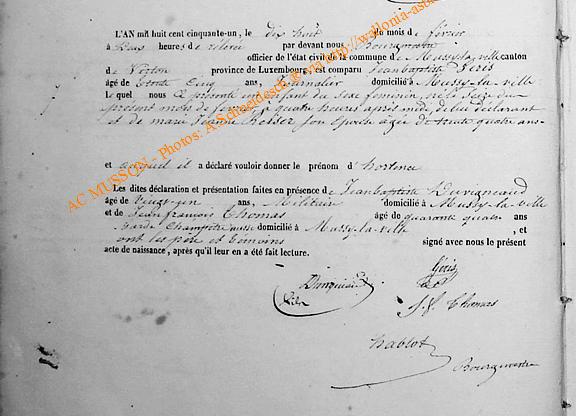 L'AN mil huit cent cinquante-un, le dix huit du mois de février
à heures de relevée par devant nous Bourgmestre
officier de l'état civil de la commune de Mussy-la-ville canton
de Virton province de Luxembourg, est comparu Jeanbaptiste
âgé de trente ans, journalier domicilié à Mussy-la-ville
Le quel nous a présenté un Enfant du Sexe feminin, né le
présent mois de février, à quatre heures après midi, de lui déclarant
et de marie Jeanne son Epouse agée de trente quatre ans-
et auquel il a déclaré vouloir donner le prénom d'hortence
Les dites déclaration et présentation faites en présence de Jeanbaptiste Duvigneaud
âgé de vingt-un ans, Militair domicilié à Mussy-la-ville
et de Jean françois Thomas âgé de quarante quatre ans
Garde Champetre aussi domicilié à Mussy-la-ville, et
ont les père et témoins signé avec nous le présent
acte de naissance, après qu'il leur en a été fait lecture.
J. f Thomas
hablot
Bourgmestre
AC MUSSON - Photos: A.Schmideschi @ http://wallonia-asbl